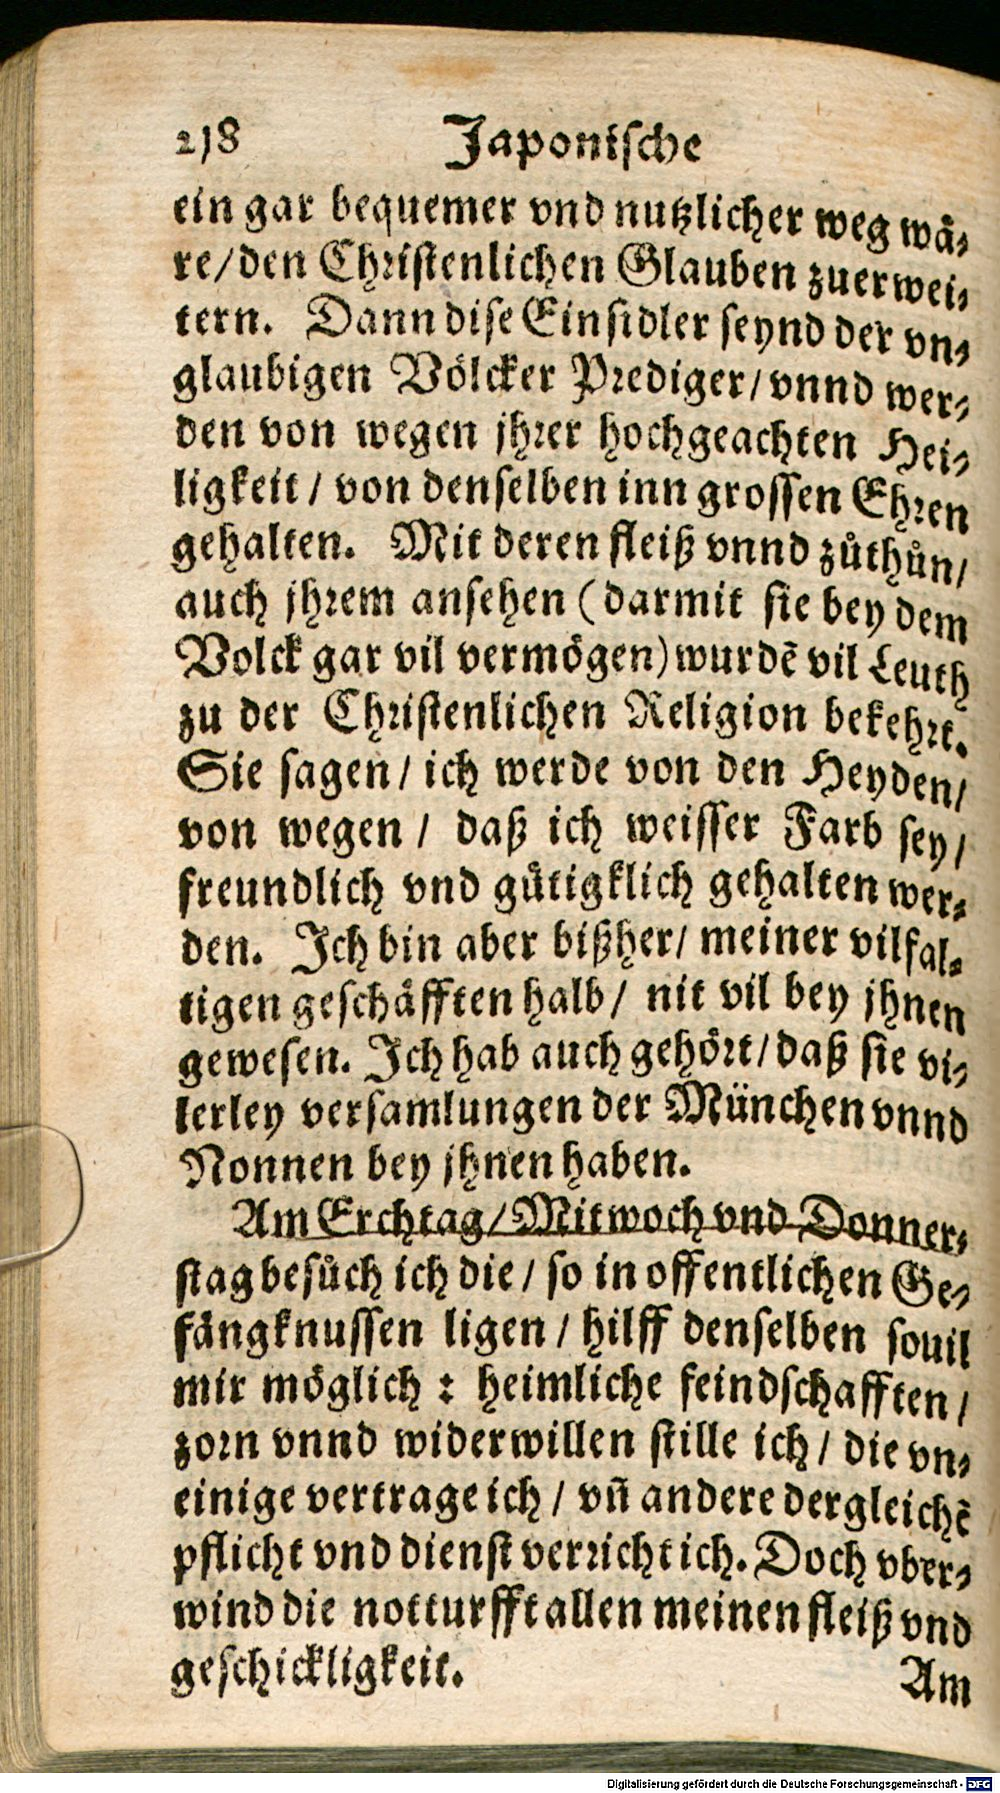 218 Japonische
ein gar bequemer vnd nutzlicher weg wä-
re/den Christenlichen Glauben zuerwei-
tern. Dann dise Einsidler seynd der vn-
glaubigen Völcker Prediger/vnnd wer-
den von wegen jhrer hochgeachten Hei-
ligkeit/von denselben inn grossen Ehren
gehalten. Mit deren fleiß vnnd zůthůn/
auch jhrem ansehen (darmit sie bey dem
Volck gar vil vermögen) wurdē vil Leuth
zu der Christenlichen Religion bekehrt.
Sie sagen/ich werde von den Heyden/
von wegen/daß ich weisser Farb sey/
freundlich vnd gütigklich gehalten wer-
den. Ich bin aber bißher/meiner vilfal-
tigen geschäfften halb/nit vil bey jhnen
gewesen. Ich hab auch gehört/daß sie vi-
lerley versamlungen der München vnnd
Nonnen bey jhnen haben.
Am Erchtag/Mitwoch vnd Donner-
stag besůch ich die/so in offentlichen Ge-
fängknussen ligen/hilff denselben souil
mir möglich: heimliche feindschafften/
zorn vnnd widerwillen stille ich/die vn-
einige vertrage ich/vñ andere dergleichē
pflicht vnd dienst verricht ich. Doch vber-
wind die notturfft allen meinen fleiß vnd
geschickligkeit.
Am
Digitalisierung gefördert durch die Deutsche Forschungsgemeinschaft - DFG